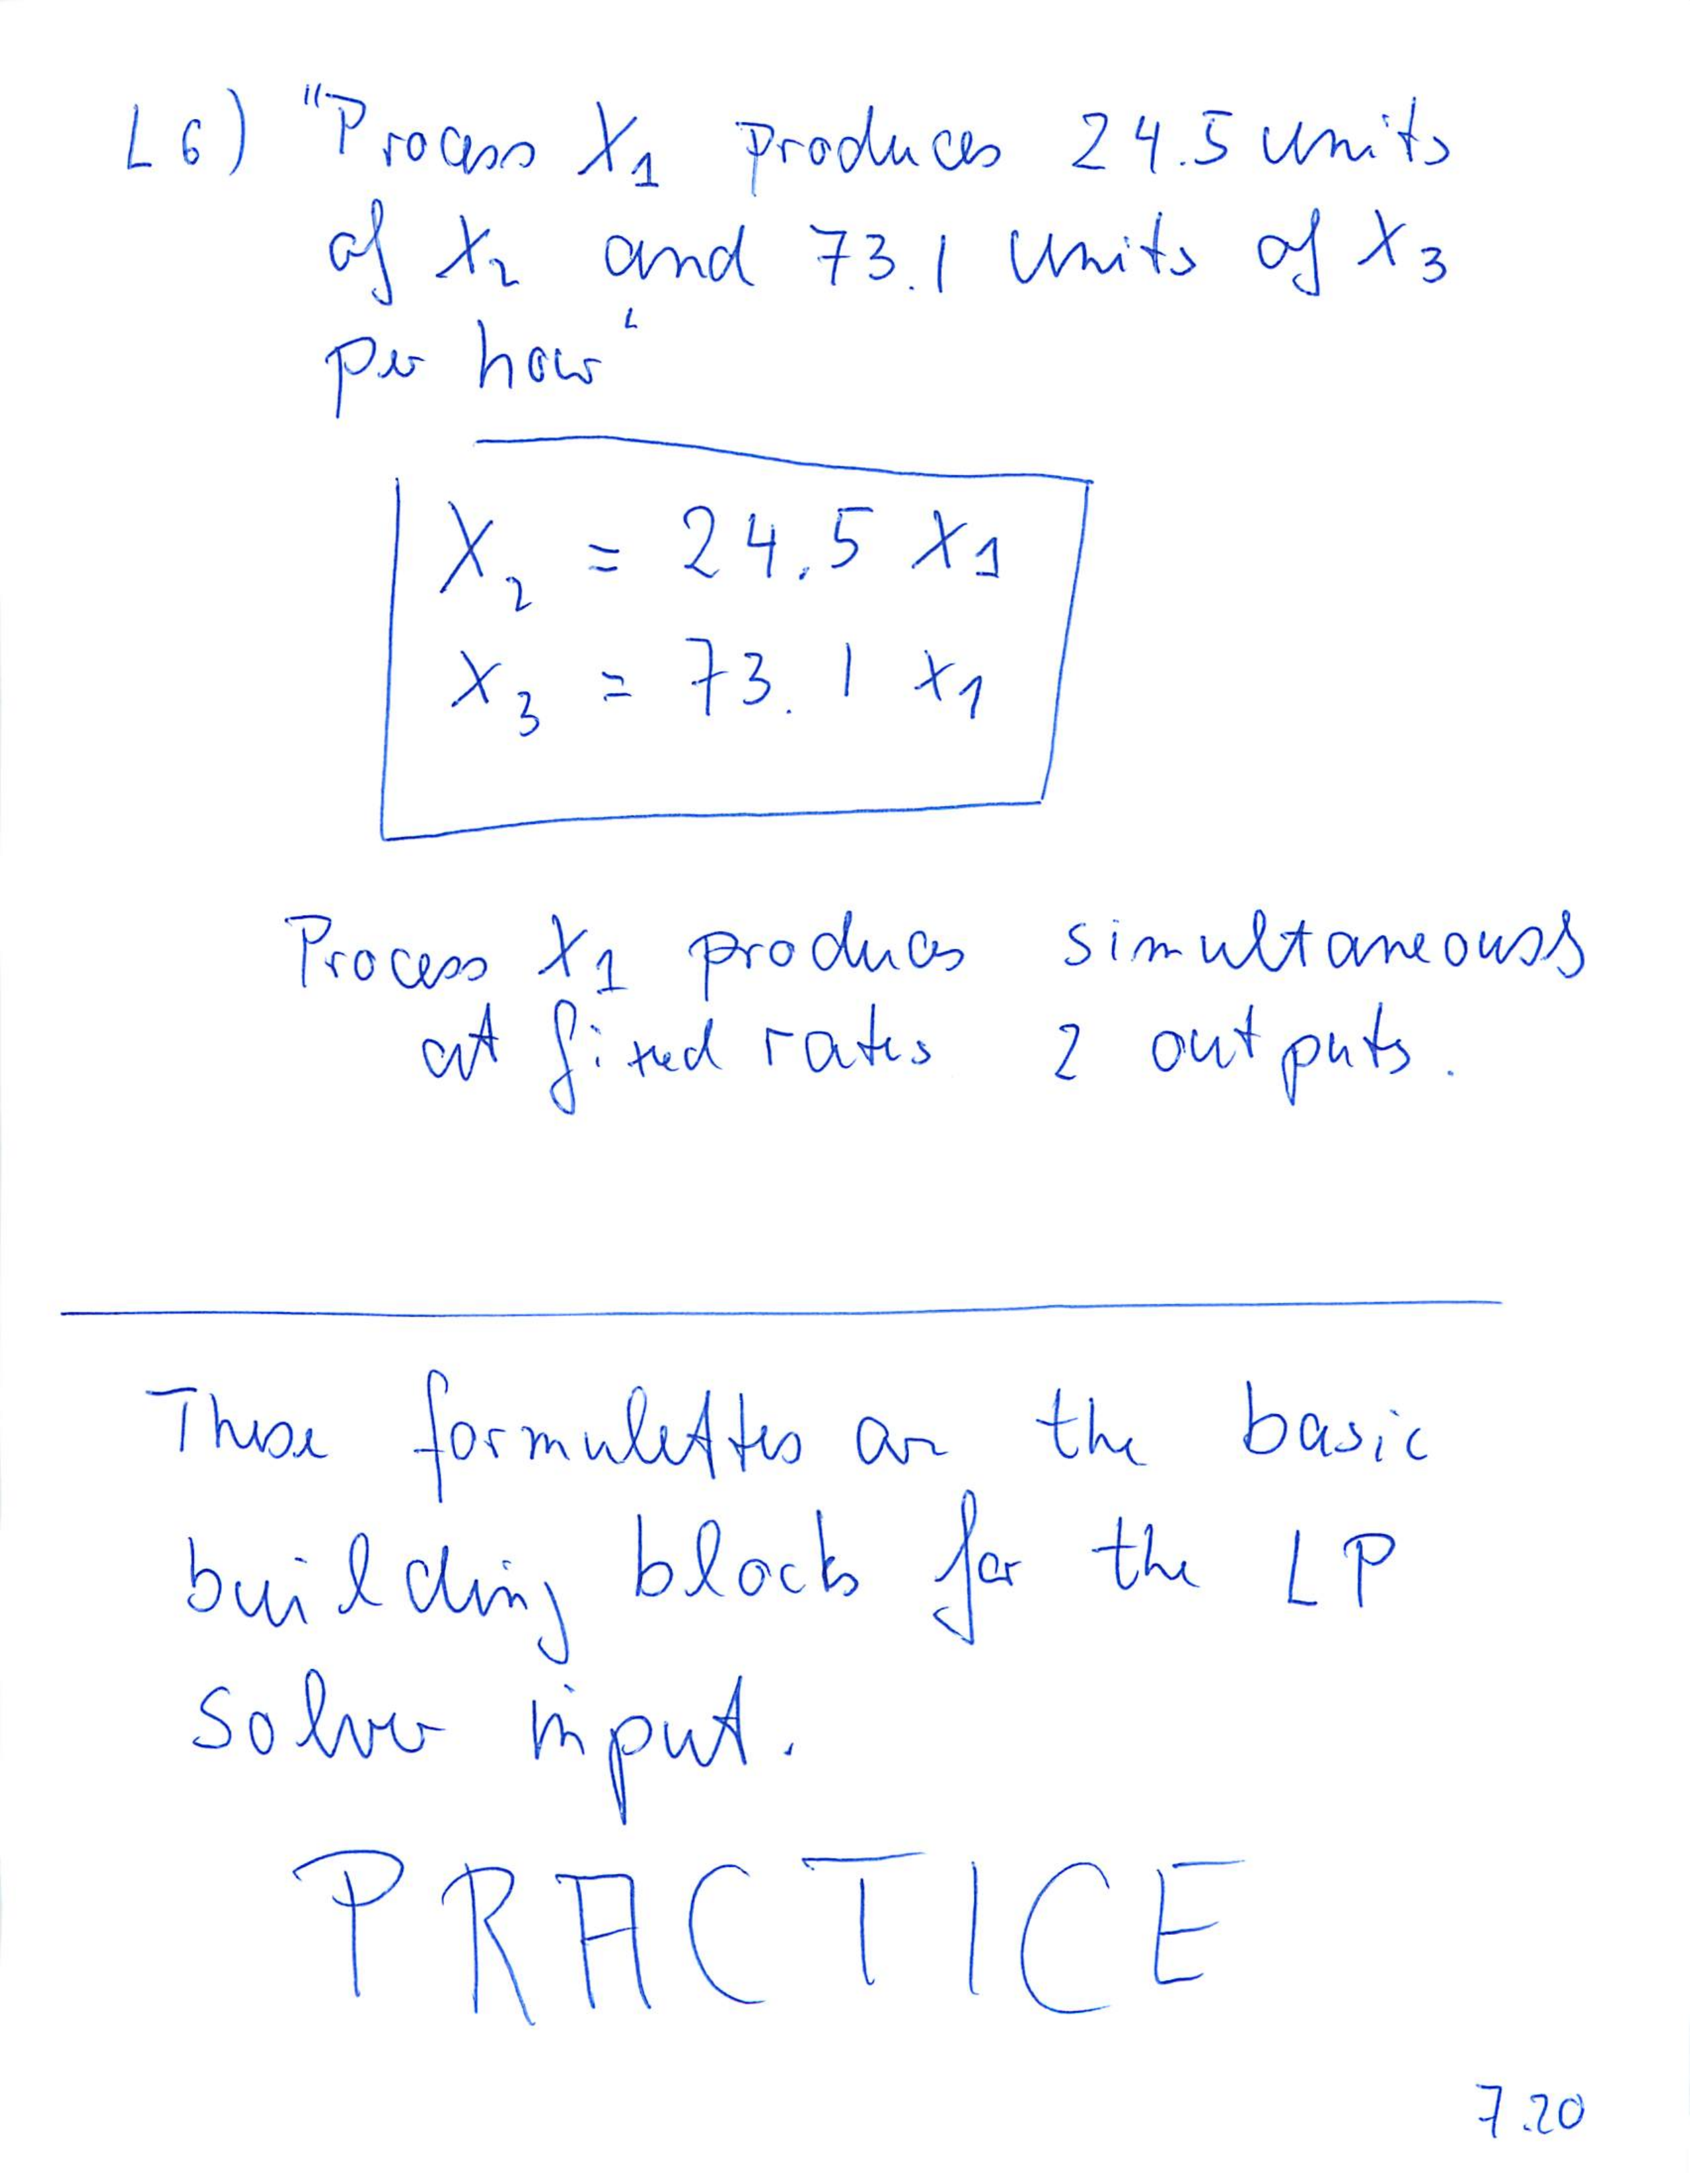 L6) "Process X1 produces 24.5 units
of X2 and 73.1 units of X3
per hour"
X2 = 24.5 X1
X3 = 73.1 X1
Process X1 produces simultaneously
at fixed rates 2 outputs.
These formulettes are the basic
building blocks for the LP
solver input.
PRACTICE
7.20